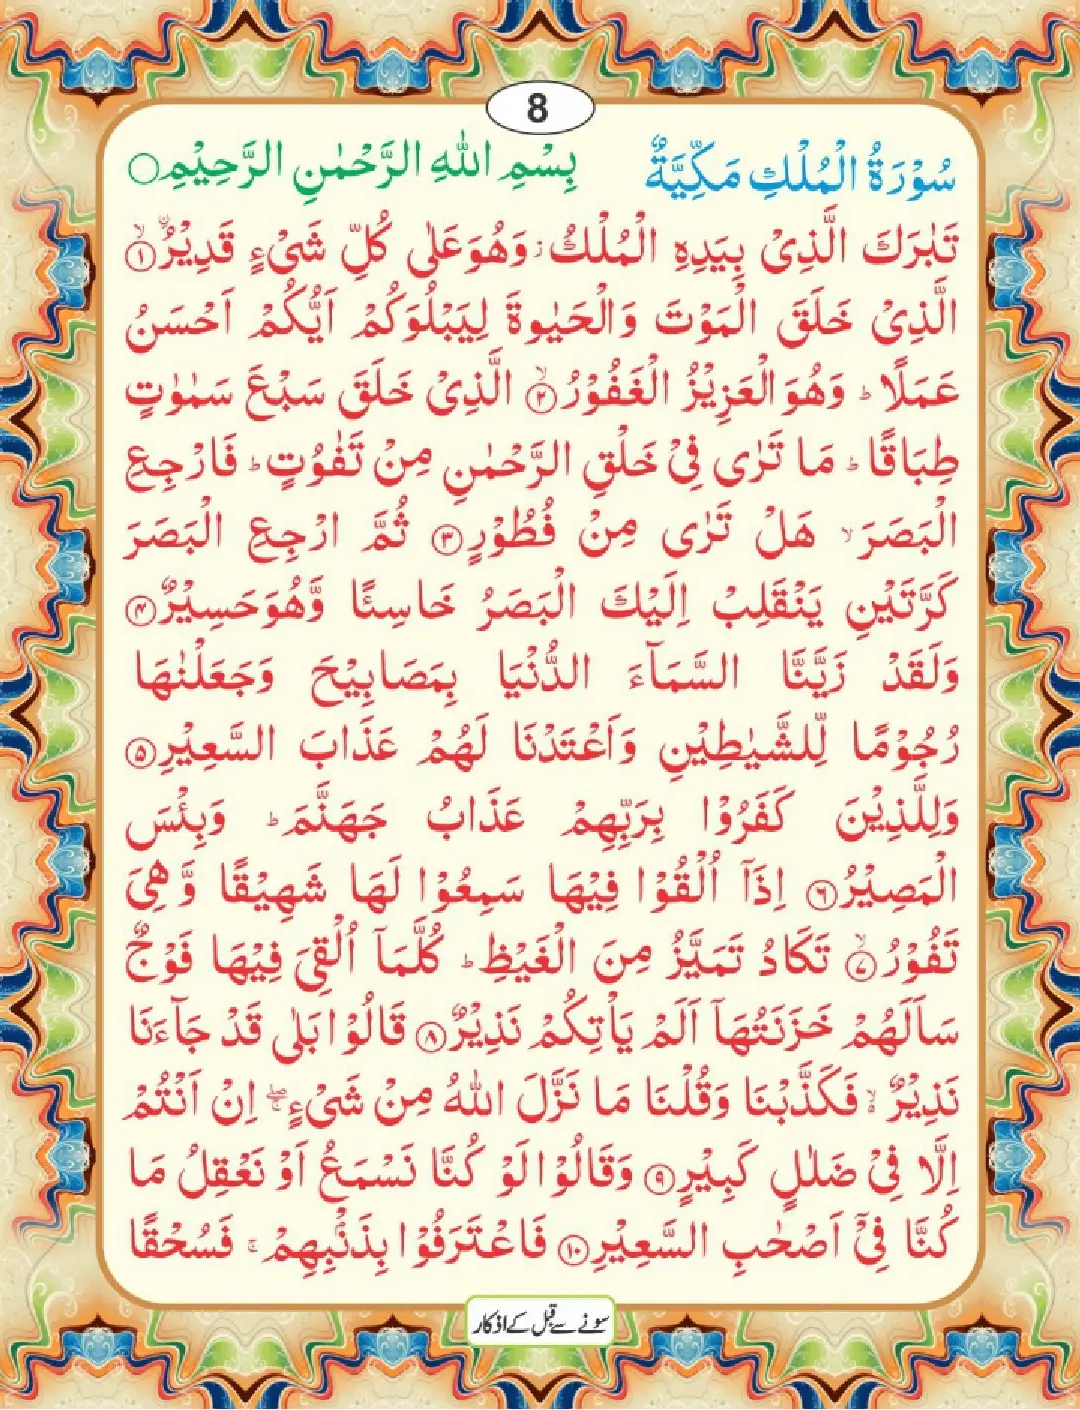 8
سُوْرَةُ الْمُلْكِ مَكِّيَّةٌ بِسْمِ اللهِ الرَّحْمٰنِ الرَّحِيْمِ○
تَبٰرَكَ الَّذِیْ بِيَدِهِ الْمُلْكُ ز وَهُوَعَلٰی كُلِّ شَیْءٍ قَدِيْرُۨ ۙ﴿۱﴾
الَّذِیْ خَلَقَ الْمَوْتَ وَالْحَيٰوةَ لِيَبْلُوَكُمْ اَيُّكُمْ اَحْسَنُ
عَمَلًا ؕ وَهُوَ الْعَزِيْزُ الْغَفُوْرُ ۙ﴿۲﴾ الَّذِیْ خَلَقَ سَبْعَ سَمٰوٰتٍ
طِبَاقًا ؕ مَا تَرٰی فِیْ خَلْقِ الرَّحْمٰنِ مِنْ تَفٰوُتٍ ؕ فَارْجِعِ
الْبَصَرَ ۙ هَلْ تَرٰی مِنْ فُطُوْرٍ ﴿۳﴾ ثُمَّ ارْجِعِ الْبَصَرَ
كَرَّتَيْنِ يَنْقَلِبْ اِلَيْكَ الْبَصَرُ خَاسِئًا وَّهُوَحَسِيْرٌ ﴿۴﴾
وَلَقَدْ زَيَّنَّا السَّمَآءَ الدُّنْيَا بِمَصَابِيْحَ وَجَعَلْنٰهَا
رُجُوْمًا لِّلشَّيٰطِيْنِ وَاَعْتَدْنَا لَهُمْ عَذَابَ السَّعِيْرِ ﴿۵﴾
وَلِلَّذِيْنَ كَفَرُوْا بِرَبِّهِمْ عَذَابُ جَهَنَّمَ ؕ وَبِئْسَ
الْمَصِيْرُ ﴿۶﴾ اِذَآ اُلْقُوْا فِيْهَا سَمِعُوْا لَهَا شَهِيْقًا وَّهِیَ
تَفُوْرُ ۙ﴿۷﴾ تَكَادُ تَمَيَّزُ مِنَ الْغَيْظِ ؕ كُلَّمَآ اُلْقِیَ فِيْهَا فَوْجٌ
سَاَلَهُمْ خَزَنَتُهَآ اَلَمْ يَاْتِكُمْ نَذِيْرٌ ﴿۸﴾ قَالُوْا بَلٰی قَدْ جَآءَنَا
نَذِيْرٌ ۙ فَكَذَّبْنَا وَقُلْنَا مَا نَزَّلَ اللهُ مِنْ شَیْءٍ ۚۖ اِنْ اَنْتُمْ
اِلَّا فِیْ ضَلٰلٍ كَبِيْرٍ ﴿۹﴾ وَقَالُوْا لَوْ كُنَّا نَسْمَعُ اَوْ نَعْقِلُ مَا
كُنَّا فِیْۤ اَصْحٰبِ السَّعِيْرِ ﴿۱۰﴾ فَاعْتَرَفُوْا بِذَنْۢبِهِمْ ۚ فَسُحْقًا
سونے سے قبل کے اذکار